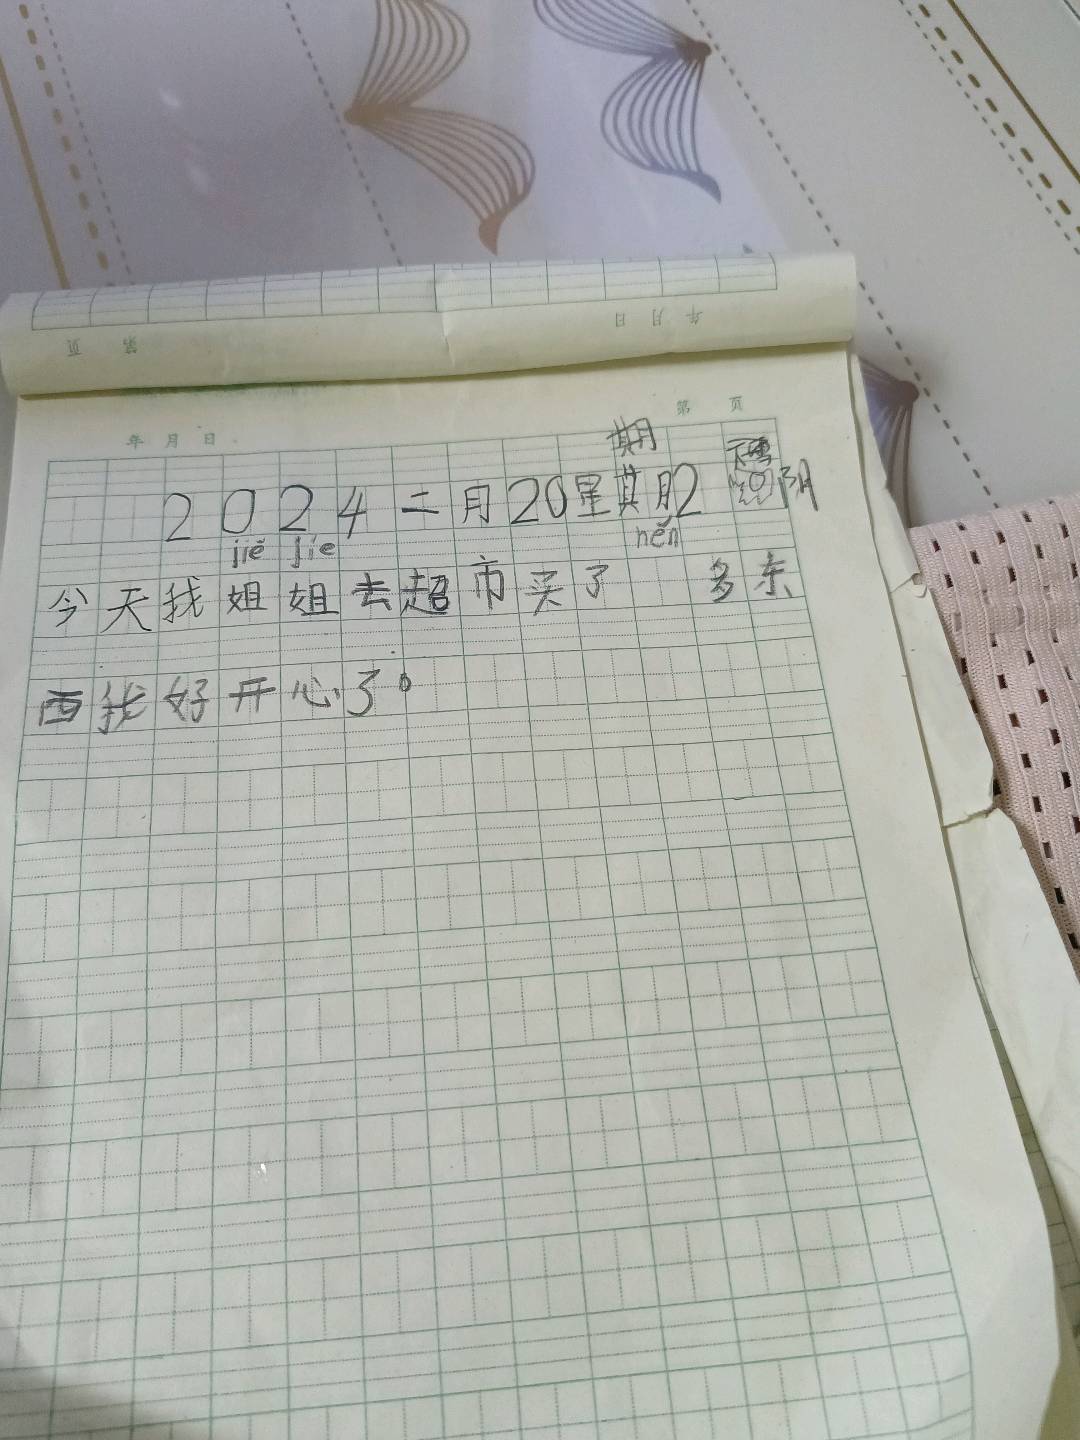 年 月 日
第 页
年 月 日
第 页
期
2024二月20星期2 阴
jiě jie něn
今天我姐姐去超市买了 多东
西我好开心了。